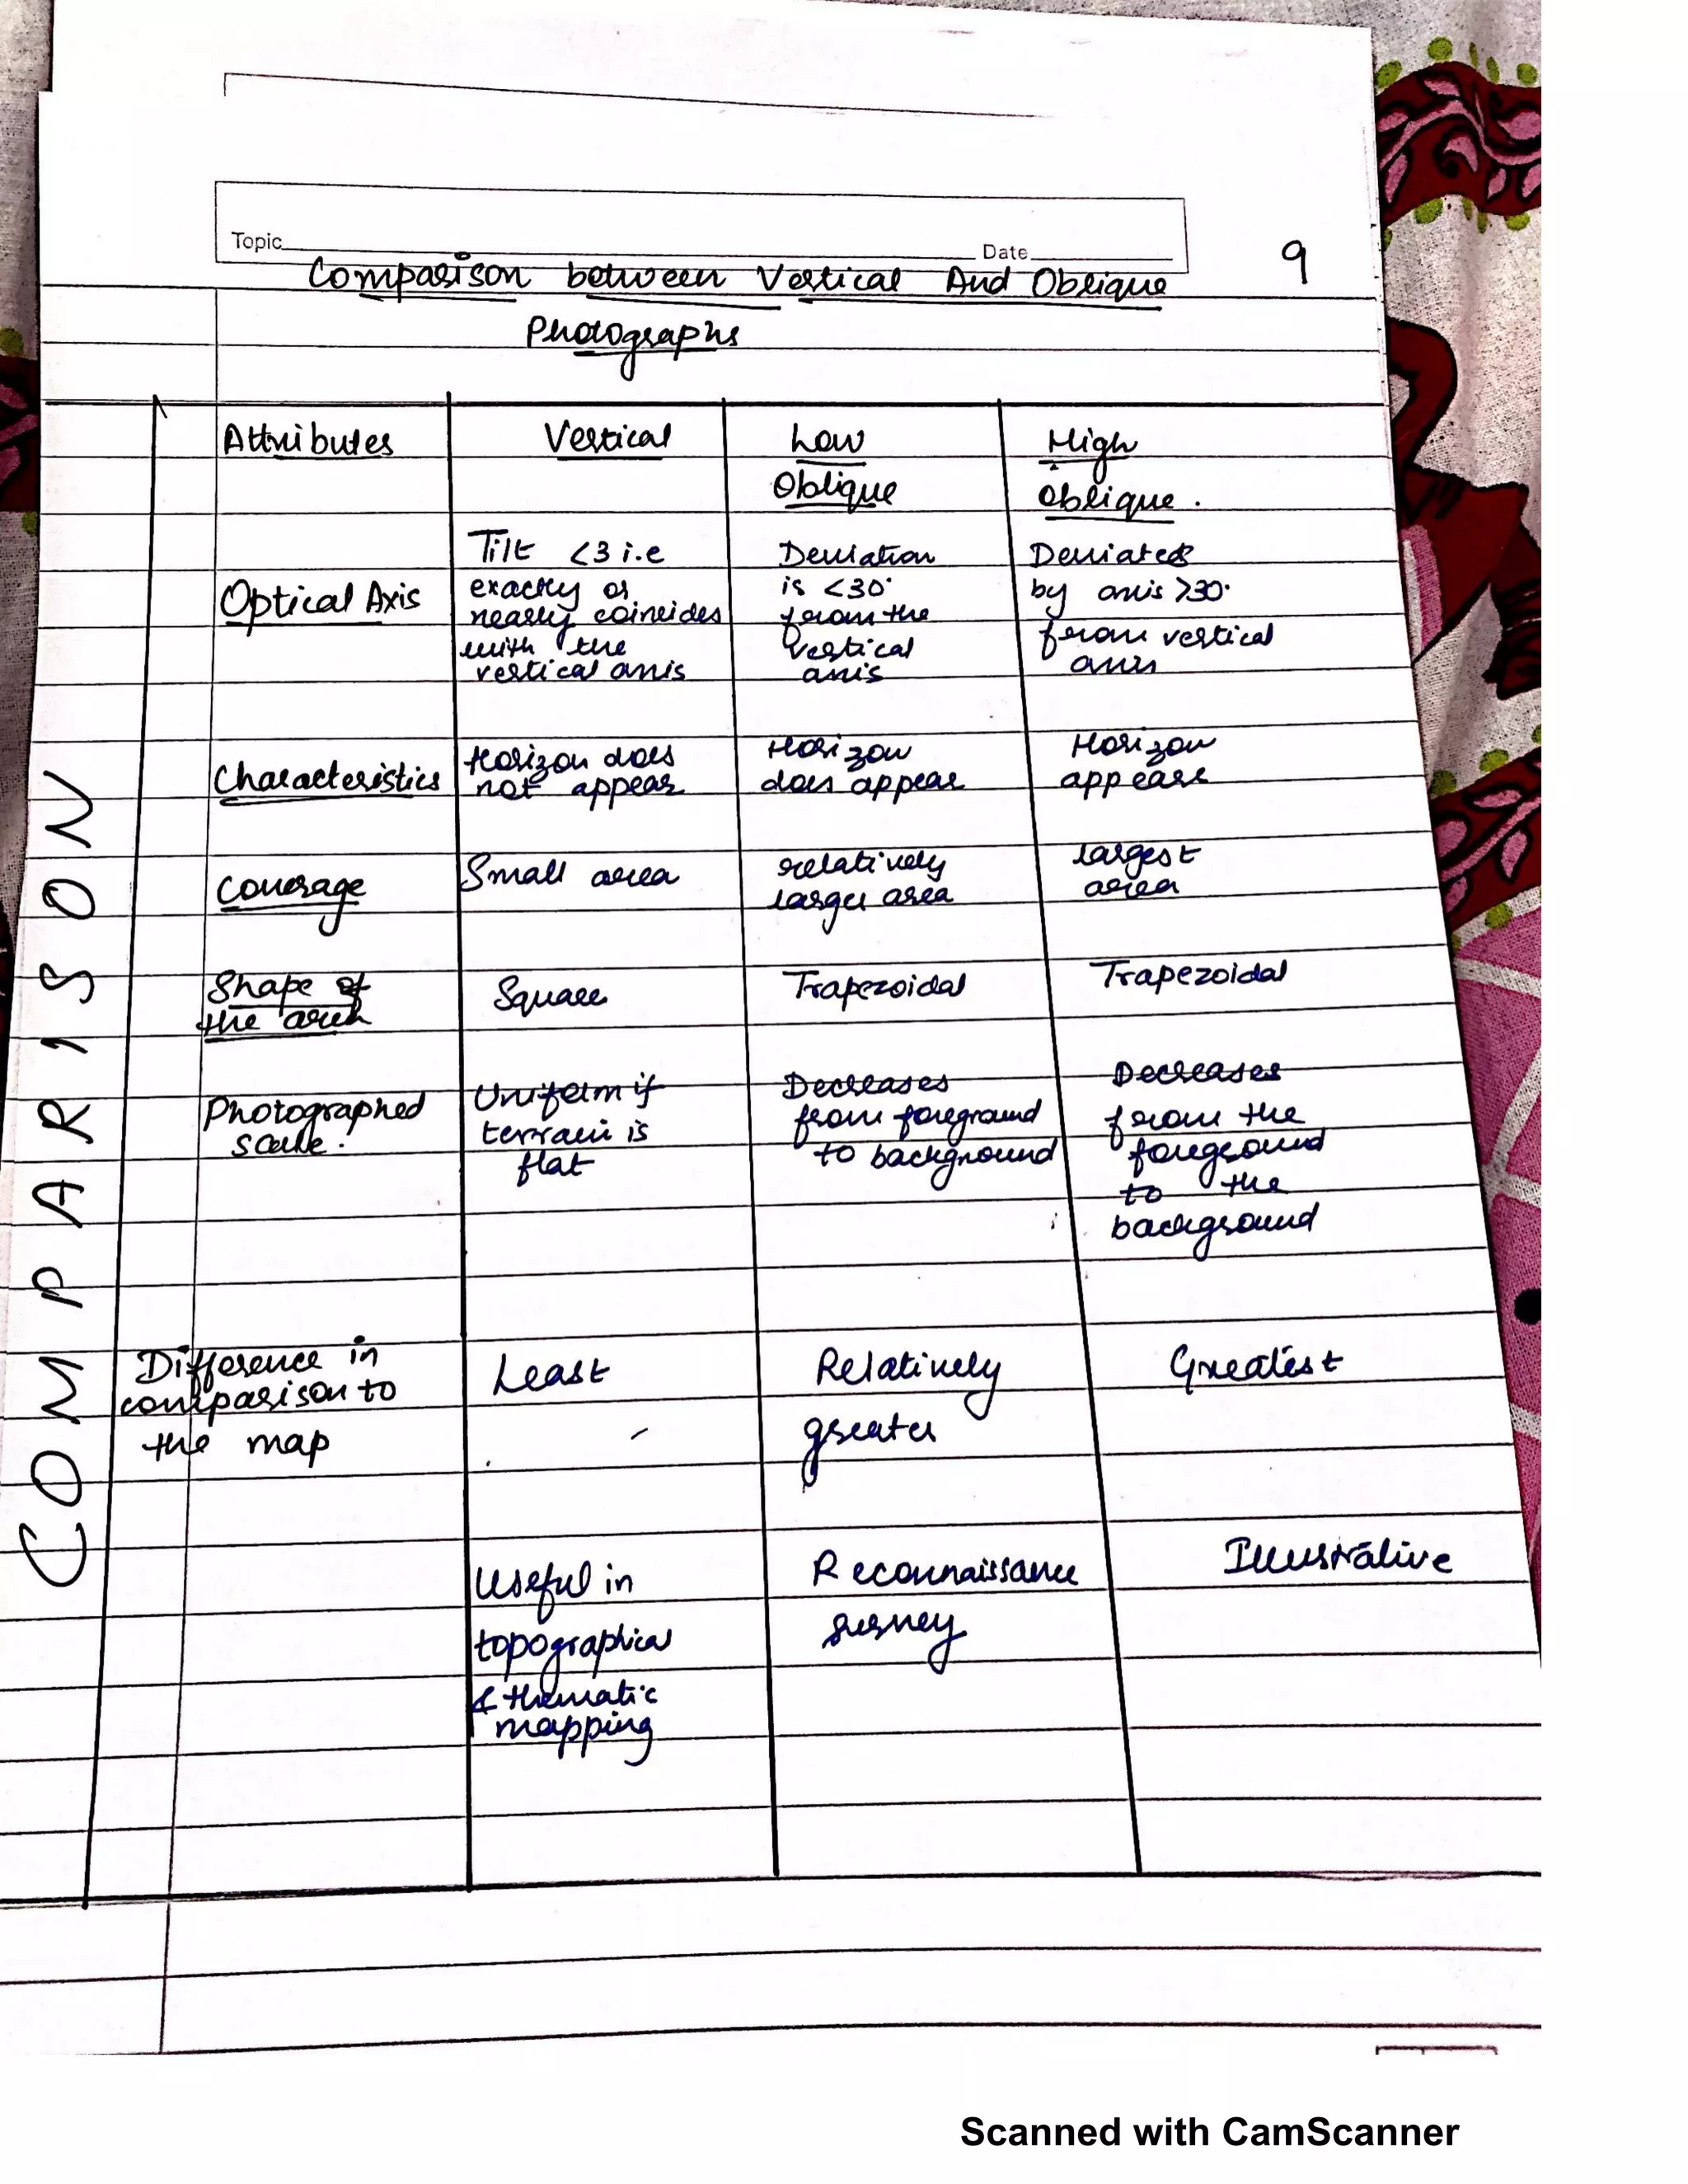 Topic Date
9
Comparison between Vertical And Oblique
Photographs
COMPARISON
Attributes
Vertical
Low
Oblique
High
Oblique.
Optical Axis
Tilt <3 i.e
exactly or
nearly coincides
with the
vertical axis
Deviation
is <30°
from the
vertical
axis
Deviated
by axis >30°
from vertical
axis
Characteristics
Horizon does
not appear
Horizon
does appear
Horizon
appears
Coverage
Small area
relatively
larger area
largest
area
Shape of
the area
Square
Trapezoidal
Trapezoidal
Photographed
scale.
Uniform if
terrain is
flat
Decreases
from foreground
to background
Decreases
from the
foreground
to the
background
Difference in
comparison to
the map
Least
Relatively
greater
Greatest
Useful in
topographical
& thematic
mapping
Reconnaissance
survey
Illustrative
Scanned with CamScanner